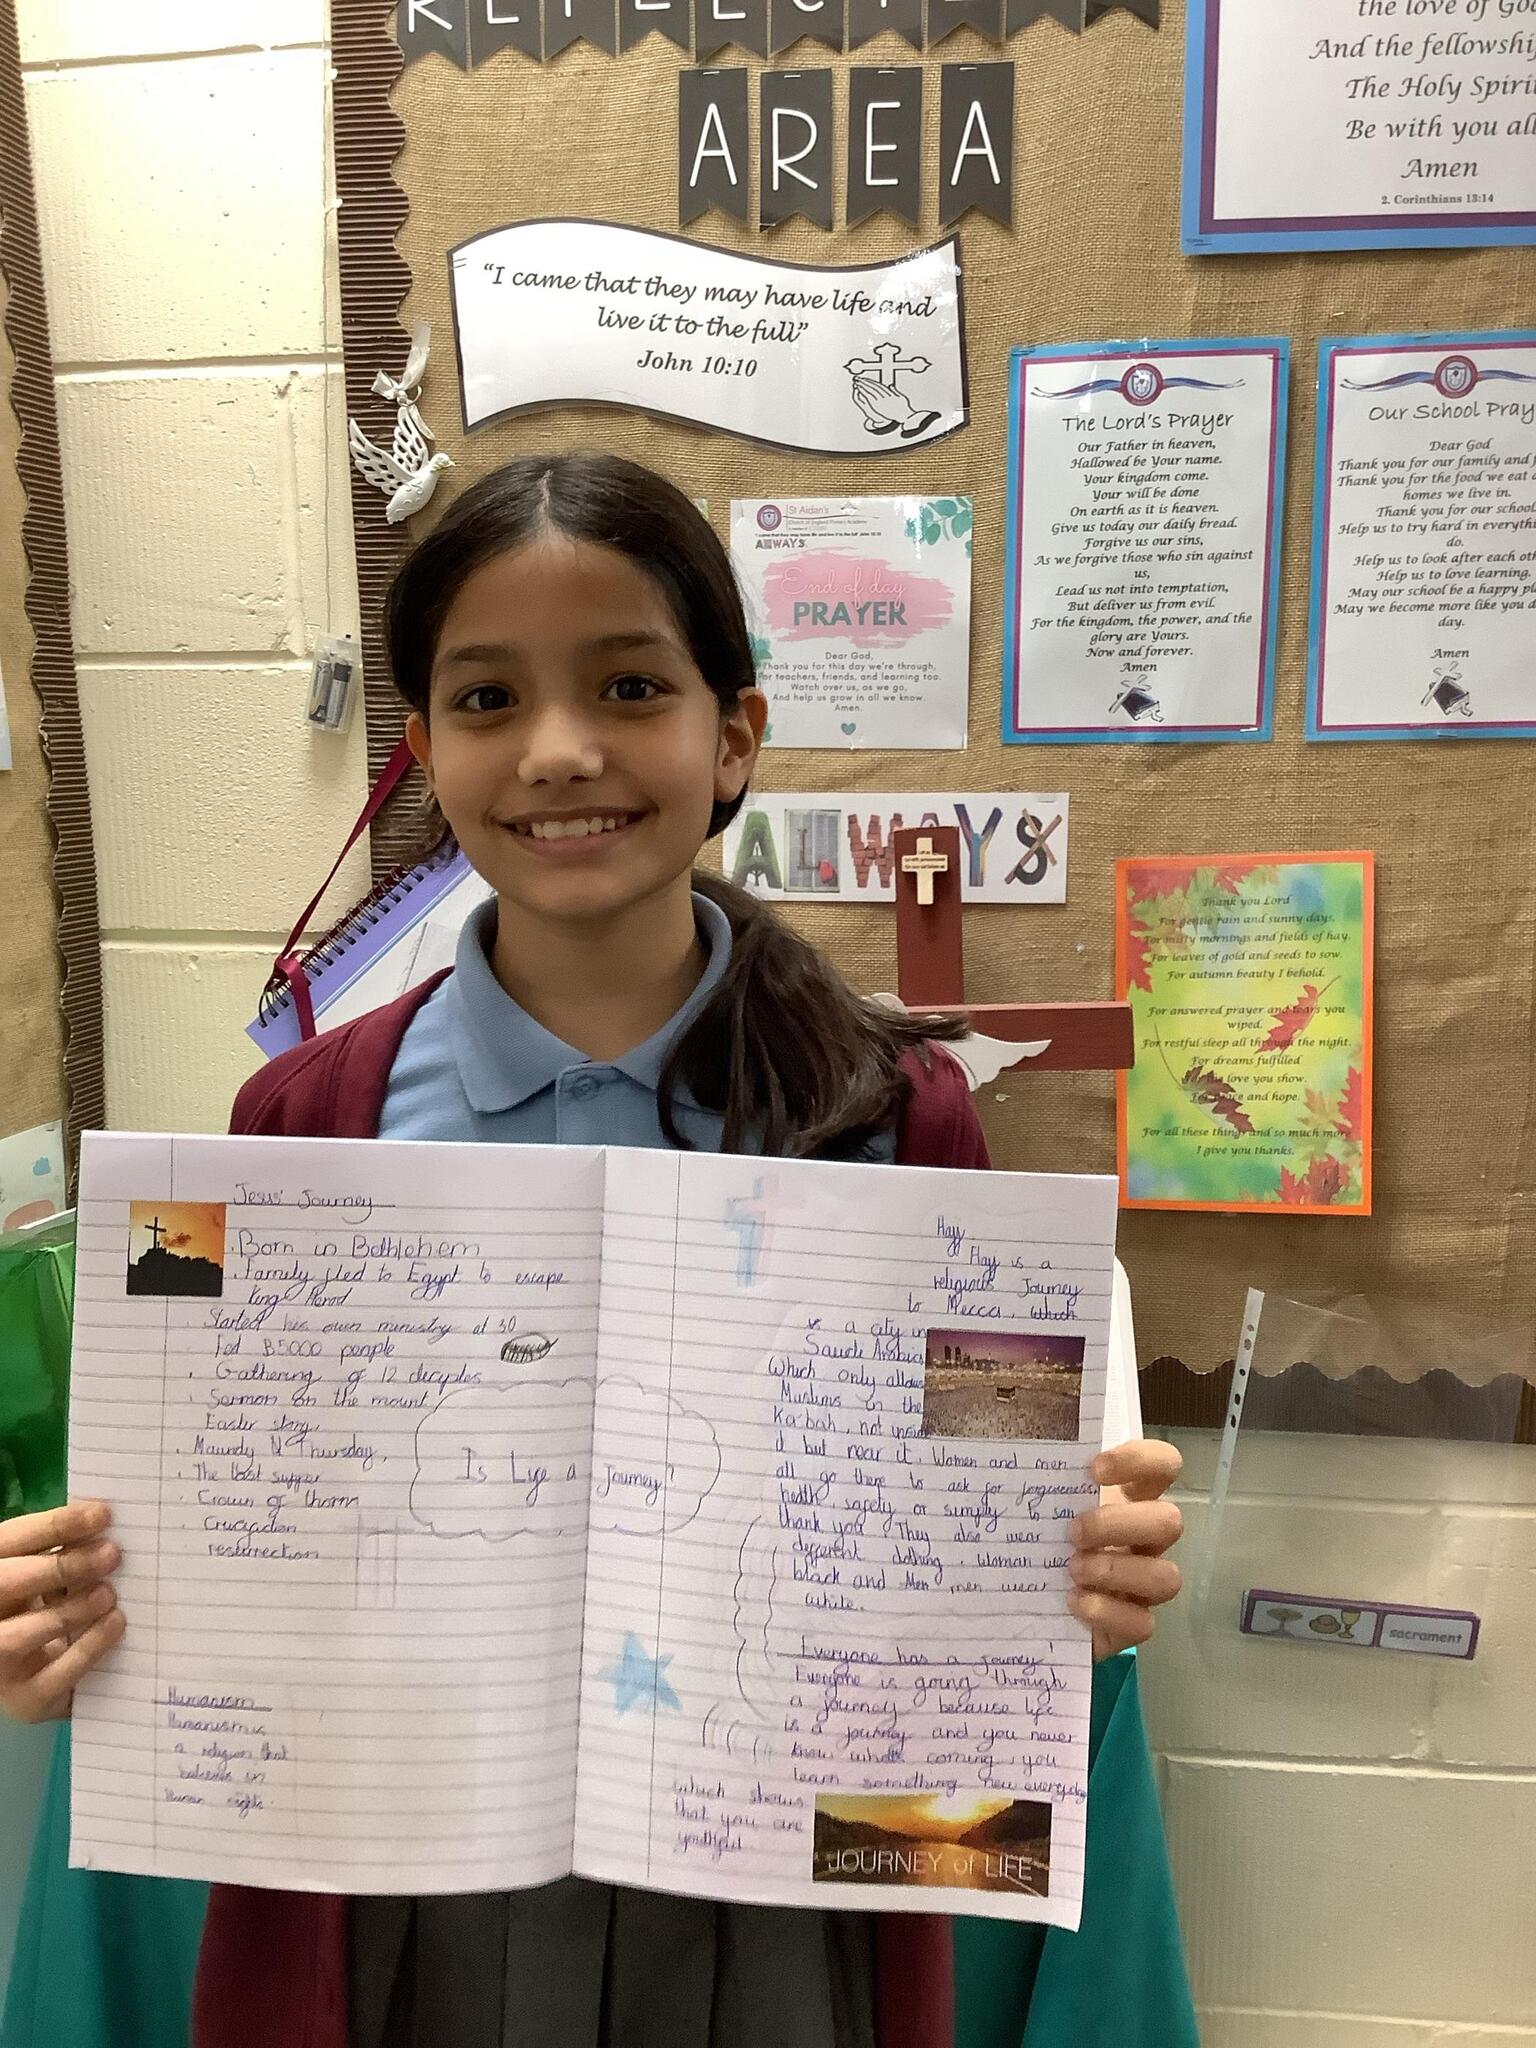 AREA
"I came that they may have life and
live it to the full"
John 10:10
the love of God
And the fellowship
The Holy Spirit
Be with you all
Amen
2. Corinthians 13:14
The Lord's Prayer
Our Father in heaven,
Hallowed be Your name.
Your kingdom come.
Your will be done
On earth as it is heaven.
Give us today our daily bread.
Forgive us our sins,
As we forgive those who sin against
us,
Lead us not into temptation,
But deliver us from evil.
For the kingdom, the power, and the
glory are Yours.
Now and forever.
Amen
Our School Pray
Dear God
Thank you for our family and f
Thank you for the food we eat
homes we live in.
Thank you for our school
Help us to try hard in everythi
do.
Help us to look after each oth
Help us to love learning.
May our school be a happy pl
May we become more like you
day.
Amen
St Aidan's
Church of England Primary Academy
ALWAYS
End of day
PRAYER
Dear God,
Thank you for this day we're through,
For teachers, friends, and learning too.
Watch over us, as we go,
And help us grow in all we know.
Amen.
ALWAYS
Thank you Lord
For gentle rain and sunny days.
For misty mornings and fields of hay.
For leaves of gold and seeds to sow.
For autumn beauty I behold.
For answered prayer and tears you
wiped.
For restful sleep all through the night.
For dreams fulfilled
For the love you show.
For peace and hope.
For all these things and so much more
I give you thanks.
Jesus' Journey
Born in Bethlehem
Family fled to Egypt to escape
King Herod
Started his own ministry at 30
Fed 5000 people
Gathering of 12 deciples
Sermon on the mount
Easter story,
Maundy Thursday,
The last supper
Crown of thorn
Crucifidion
resurrection
Is Life a Journey?
Humanism
Humanism is
a religion that
believes in
Human rights.
Hajj
Hajj is a
religious Journey
to Mecca, which
a city in
Saudi Arabia
Which only allows
Muslims in the
Ka'bah, not inside
it but near it. Women and men
all go there to ask for forgiveness,
health, safety or simply to say
thank you. They also wear
different clothing. Woman wear
black and Men men wear
white.
Everyone has a journey!
Everyone is going through
a journey because life
is a journey and you never
know what's coming, you
learn something new everyday
which shows
that you are
JOURNEY of LIFE
sacrament